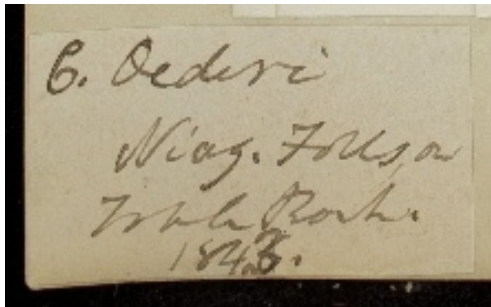 C. Oederi
Niag. Falls, on
Table Rock.
1843.